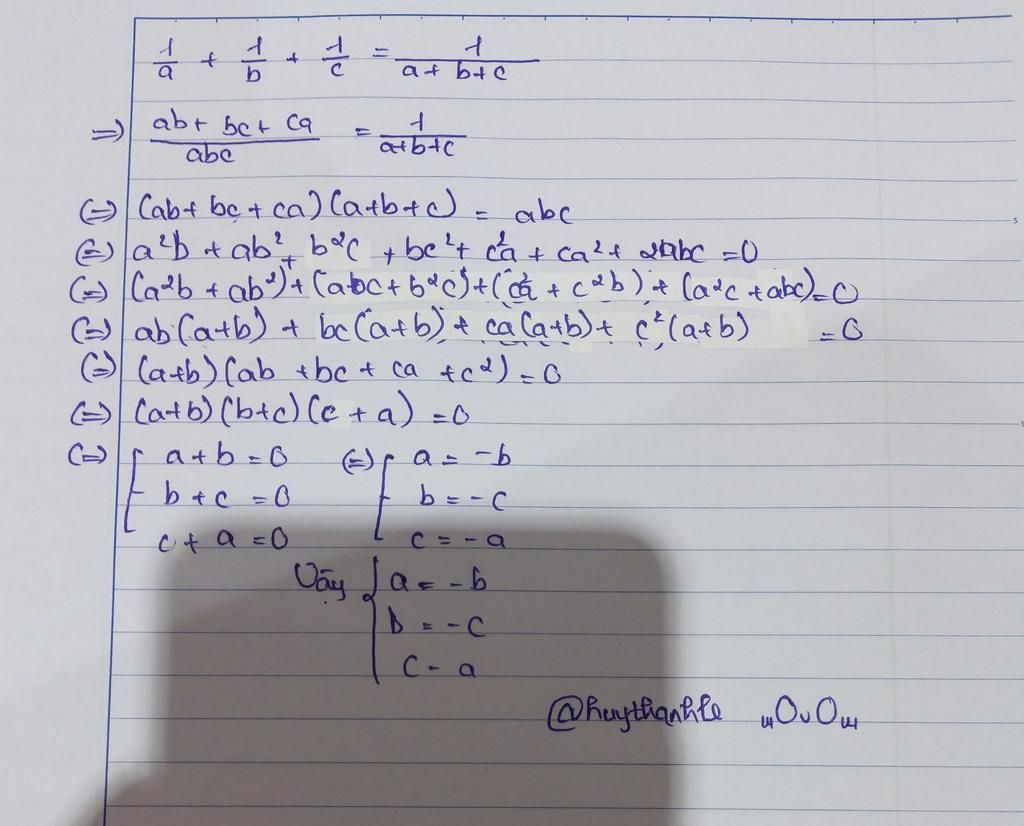 1/a + 1/b + 1/c = 1/(a+b+c)
=> (ab+bc+ca)/abc = 1/(a+b+c)
(=) (ab+bc+ca)(a+b+c) = abc
(=) a²b + ab² + b²c + bc² + c²a + ca² + 2abc = 0
(=) (a²b + ab²) + (abc + b²c) + (c²a + c²b) + (a²c + abc) = 0
(=) ab(a+b) + bc(a+b) + ca(a+b) + c²(a+b) = 0
(=) (a+b)(ab + bc + ca + c²) = 0
(=) (a+b)(b+c)(c+a) = 0
(=) [ a+b=0 (=) [ a = -b
b+c=0 b = -c
c+a=0 c = -a
Vậy { a = -b
b = -c
c - a
@huythanhle ,,OvO,,